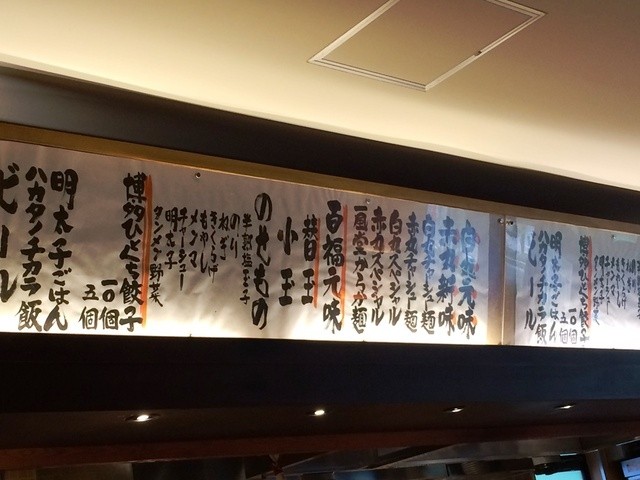 白丸元味
赤丸新味
白丸チャーシュー麺
赤丸チャーシュー麺
白丸スペシャル
赤丸スペシャル
一風堂からか麺
百福元味
替玉
小玉
のせもの
半熟塩玉子
のり
ねぎ
きくらげ
もやし
メンマ
チャーシュー
明太子
タンメン野菜
博多ひとくち餃子
一〇個
五個
明太子ごはん
ハカタノチカラ飯
ビール
博多ひとくち餃子
一〇個
五個
明太子ごはん
ハカタノチカラ飯
ビール